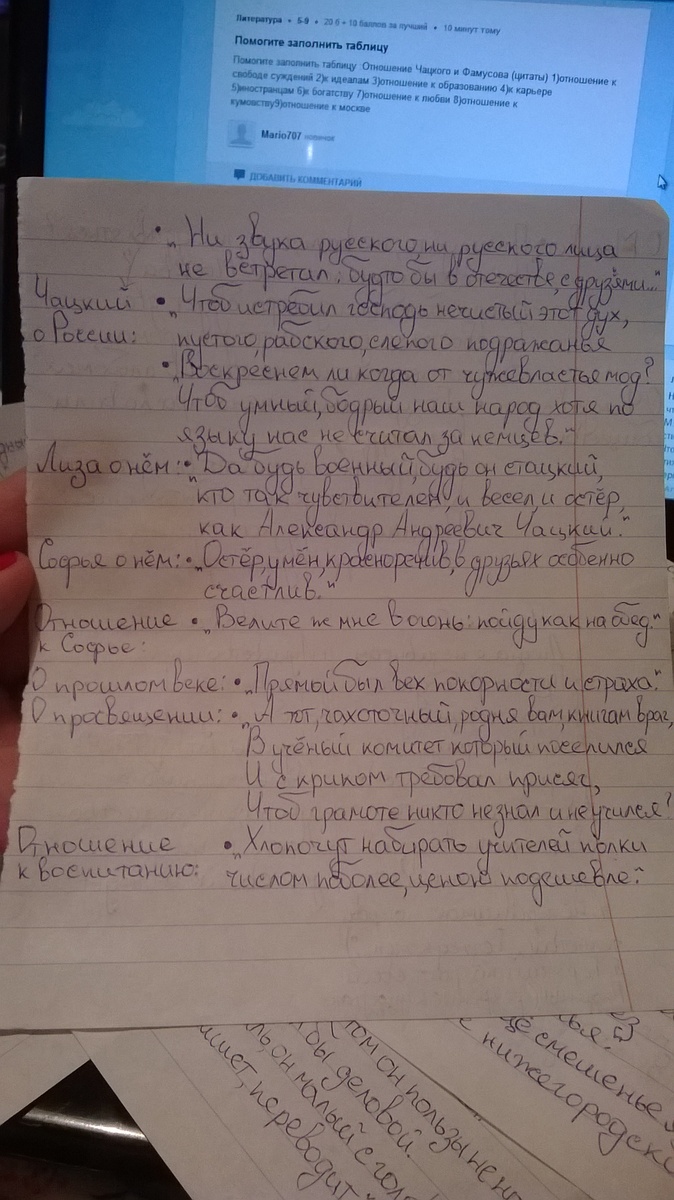 Литература • 5-9 • 20 б + 10 баллов за лучший • 10 минут тому
Помогите заполнить таблицу
Помогите заполнить таблицу :Отношение Чацкого и Фамусова (цитаты) 1)отношение к
свободе суждений 2)к идеалам 3)отношение к образованию 4)к карьере
5)иностранцам 6)к богатству 7)отношение к любви 8)отношение к
кумовству9)отношение к москве
Mario707 новичок
ДОБАВИТЬ КОММЕНТАРИЙ
• „Ни звука русского, ни русского лица
не встретал: будто бы в отечестве, с друзьями..."
Чацкий • „Чтоб истребил господь нечистый этот дух,
о России: пустого, рабского, слепого подражанья
• „Воскреснем ли когда от чужевластья мод?
Чтоб умный, бодрый наш народ хотя по
языку нас не считал за немцев."
Лиза о нём: • „Да будь военный, будь он статский,
кто так чувствителен, и весел, и остёр,
как Александр Андреевич Чацкий."
Софья о нём: • „Остёр, умён, красноречив, в друзьях особенно
счастлив."
Отношение • „Велите ж мне в огонь: пойду как на обед."
к Софье:
О прошлом веке: • „Прямой был век покорности и страха."
О просвещении: • „А тот, чахоточный, родня вам, книгам враг,
В учёный комитет который поселился
И с криком требовал присяг,
Чтоб грамоте никто не знал и не учился?
Отношение • „Хлопочут набирать учителей полки
к воспитанию: числом поболее, ценою подешевле."
смешенье
нижегородск
том он пользы не
бы деловой.
он малый с гол
переводит